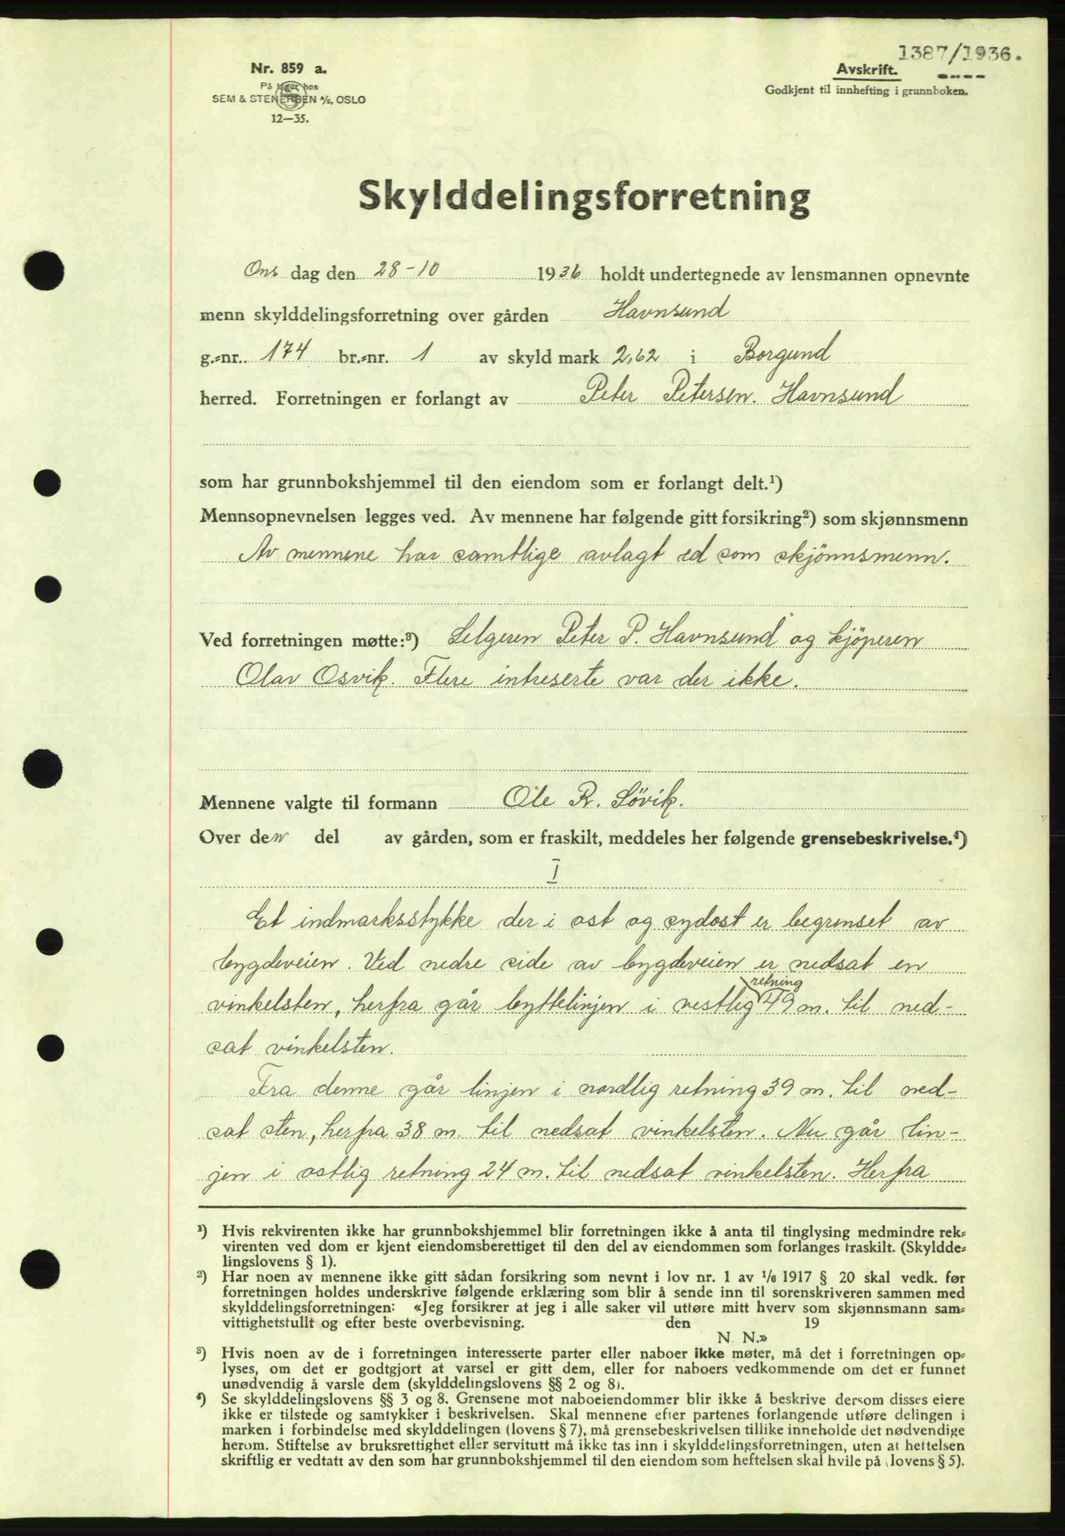 1387/1936.
Nr. 859 a.
På lager hos
SEM & STENERSEN A/S, OSLO
12—35.
Avskrift.
Godkjent til innhefting i grunnboken.
Skylddelingsforretning
Ons dag den 28-10 1936 holdt undertegnede av lensmannen opnevnte
menn skylddelingsforretning over gården Havnsund
g.-nr. 174 br.-nr. 1 av skyld mark 2,62 i Borgund
herred. Forretningen er forlangt av Peter Petersen. Havnsund
som har grunnbokshjemmel til den eiendom som er forlangt delt.¹)
Mennsopnevnelsen legges ved. Av mennene har følgende gitt forsikring²) som skjønnsmenn
Av mennene har samtlige avlagt ed som skjönnsmenn.
Ved forretningen møtte:³) Selgeren Peter P. Havnsund og kjöperen
Olav Osvik. Flere intreserte var der ikke.
Mennene valgte til formann Ole R. Sövik.
Over den del av gården, som er fraskilt, meddeles her følgende grensebeskrivelse.⁴)
I
Et indmarksstykke der i ost og sydost er begrenset av
bygdeveien. Ved nedre side av bygdeveien er nedsat en
vinkelsten, herfra går byttelinjen i vestlig retning 49 m. til ned-
sat vinkelsten.
Fra denne går linjen i nordlig retning 39 m. til ned-
sat sten, herfra 38 m. til nedsat vinkelsten. Nu går lin-
jen i ostlig retning 24 m. til nedsat vinkelsten. Herfra
¹) Hvis rekvirenten ikke har grunnbokshjemmel blir forretningen ikke å anta til tinglysing medmindre rek-
virenten ved dom er kjent eiendomsberettiget til den del av eiendommen som forlanges fraskilt. (Skyldde-
lingslovens § 1).
²) Har noen av mennene ikke gitt sådan forsikring som nevnt i lov nr. 1 av 1/6 1917 § 20 skal vedk. før
forretningen holdes underskrive følgende erklæring som blir å sende inn til sorenskriveren sammen med
skylddelingsforretningen: «Jeg forsikrer at jeg i alle saker vil utføre mitt hverv som skjønnsmann sam-
vittighetsfullt og efter beste overbevisning. den 19
N N.»
³) Hvis noen av de i forretningen interesserte parter eller naboer ikke møter, må det i forretningen op-
lyses, om det er godtgjort at varsel er gitt dem, eller for naboers vedkommende om det er funnet
unødvendig å varsle dem (skylddelingslovens §§ 2 og 8).
⁴) Se skylddelingslovens §§ 3 og 8. Grensene mot naboeiendommer blir ikke å beskrive dersom disses eiere
ikke er tilstede og samtykker i beskrivelsen. Skal mennene efter partenes forlangende utføre delingen i
marken i forbindelse med skylddelingen (lovens § 7), må grensebeskrivelsen tillike inneholde det nødvendige
herom. Stiftelse av bruksrettighet eller servitutt må ikke tas inn i skylddelingsforretningen, uten at heftelsen
skriftlig er vedtatt av den som har grunnbokshjemmel til den eiendom som heftelsen skal hvile på (lovens § 5).